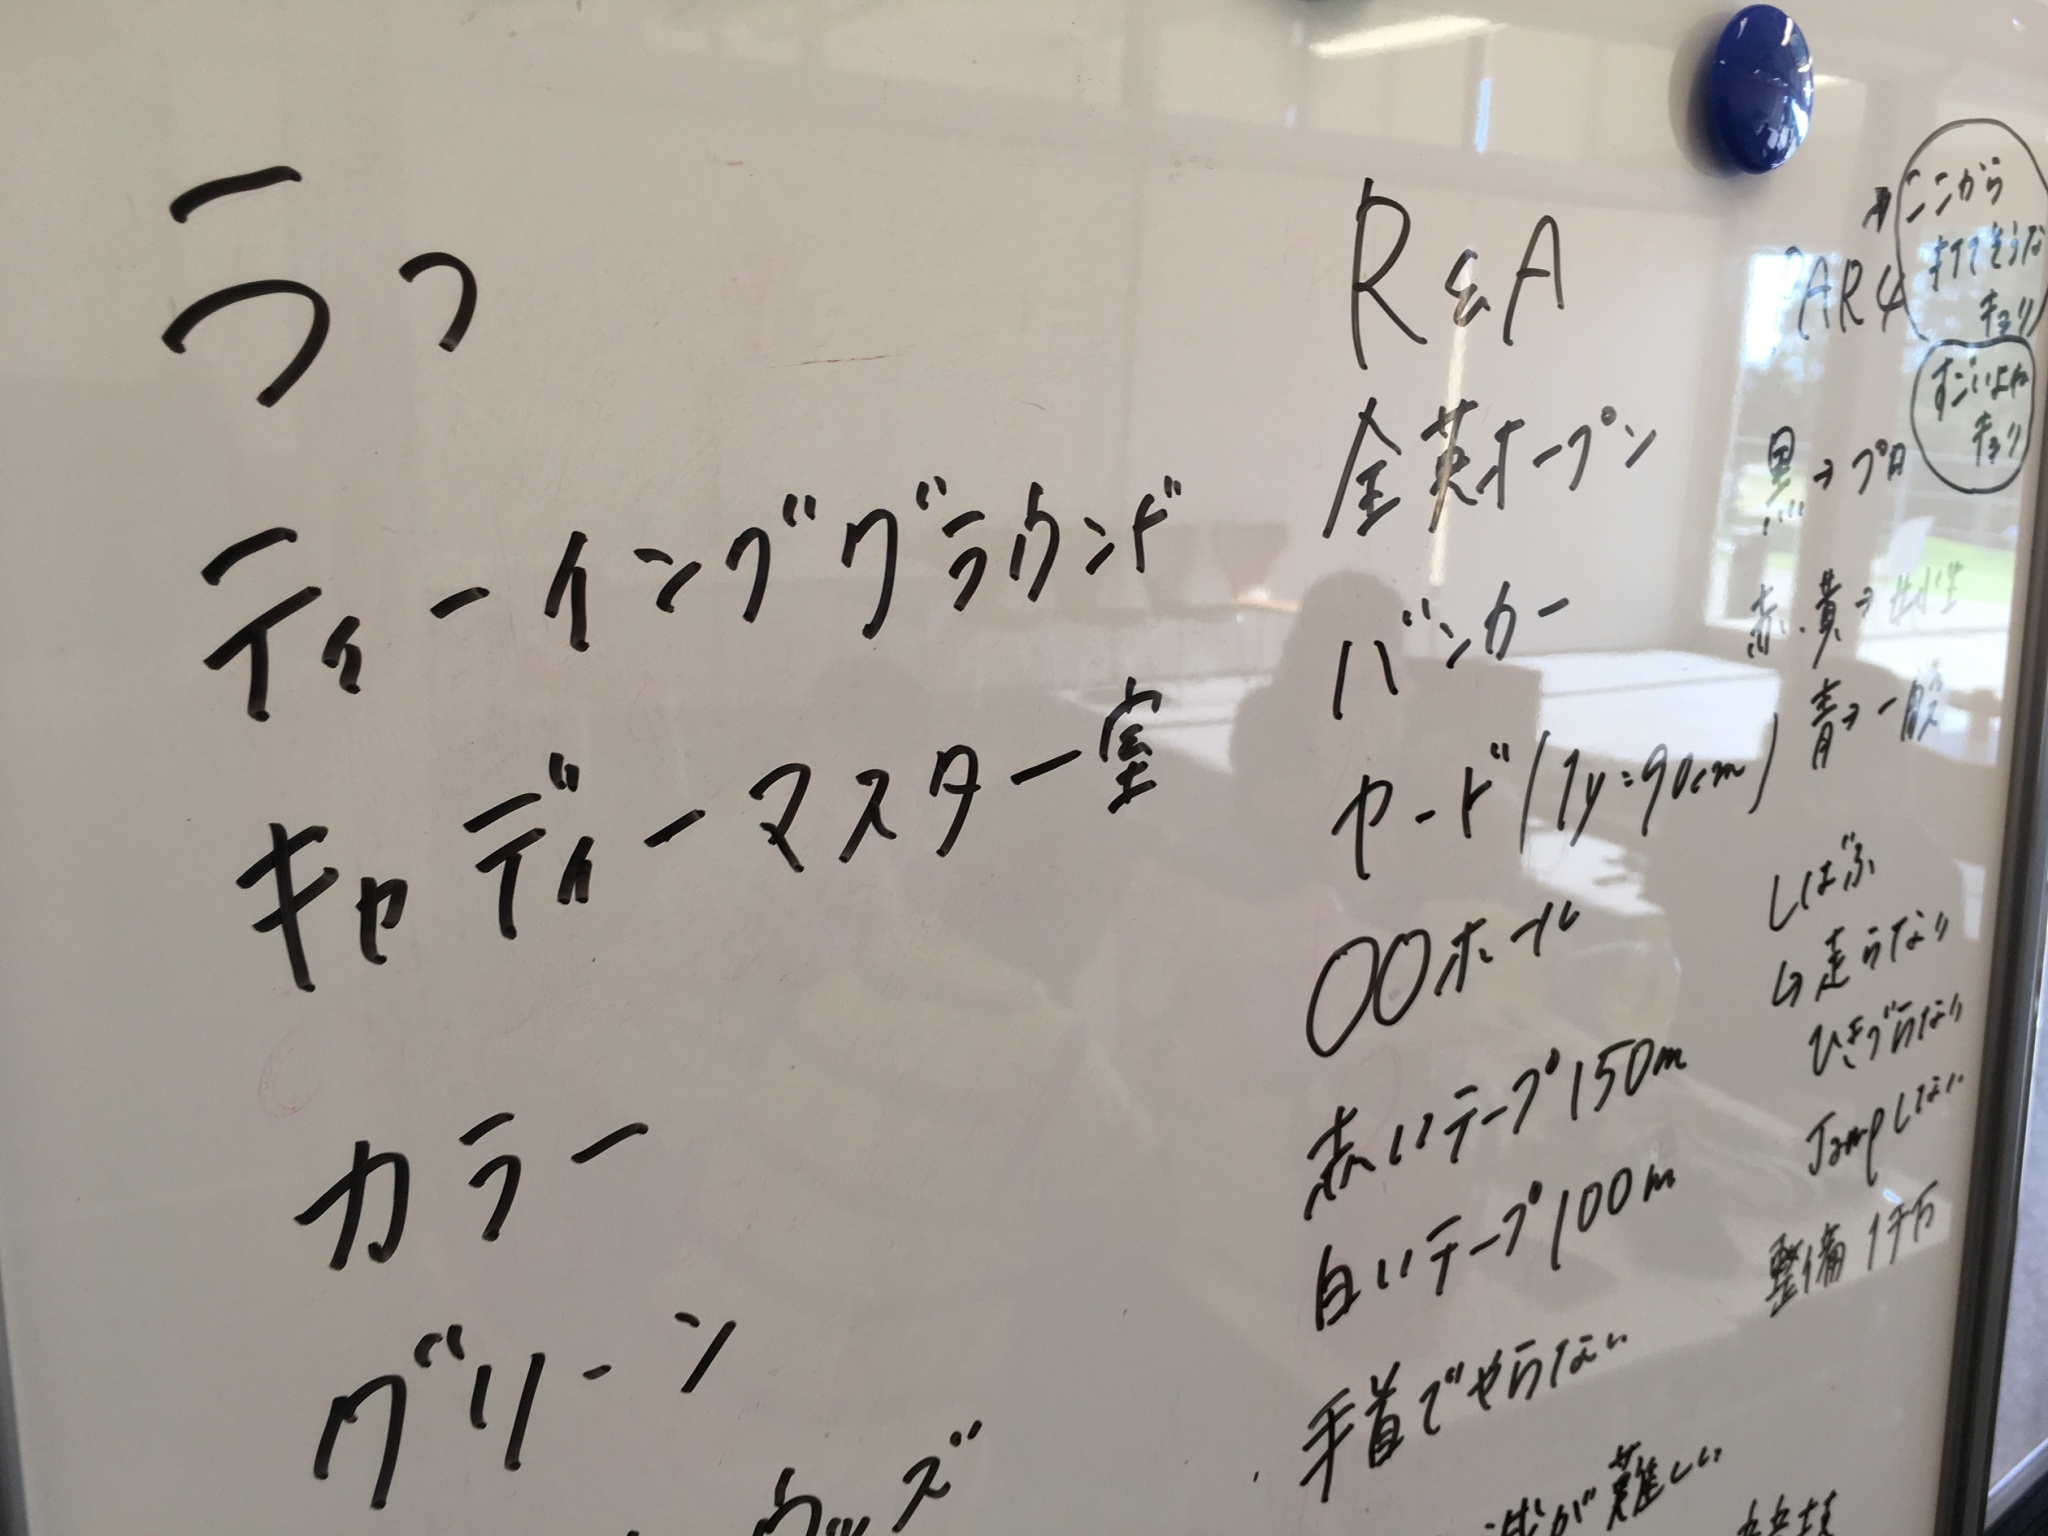 らっ
ティーインググラウンド
キャディーマスター室
カラー
グリーン
ウッズ
R&A
全英オープン
バンカー
ヤード(1y=90cm)
〇〇ホール
赤いテープ150m
白いテープ100m
手首でやらない
が難しい
ここから
キョリ
PAR4
すごいよね
キョリ
黒→プロ
赤.黄→女性
青→一般
しばふ
↳走らない
ひきづらない
Jampしない
整備 1千万